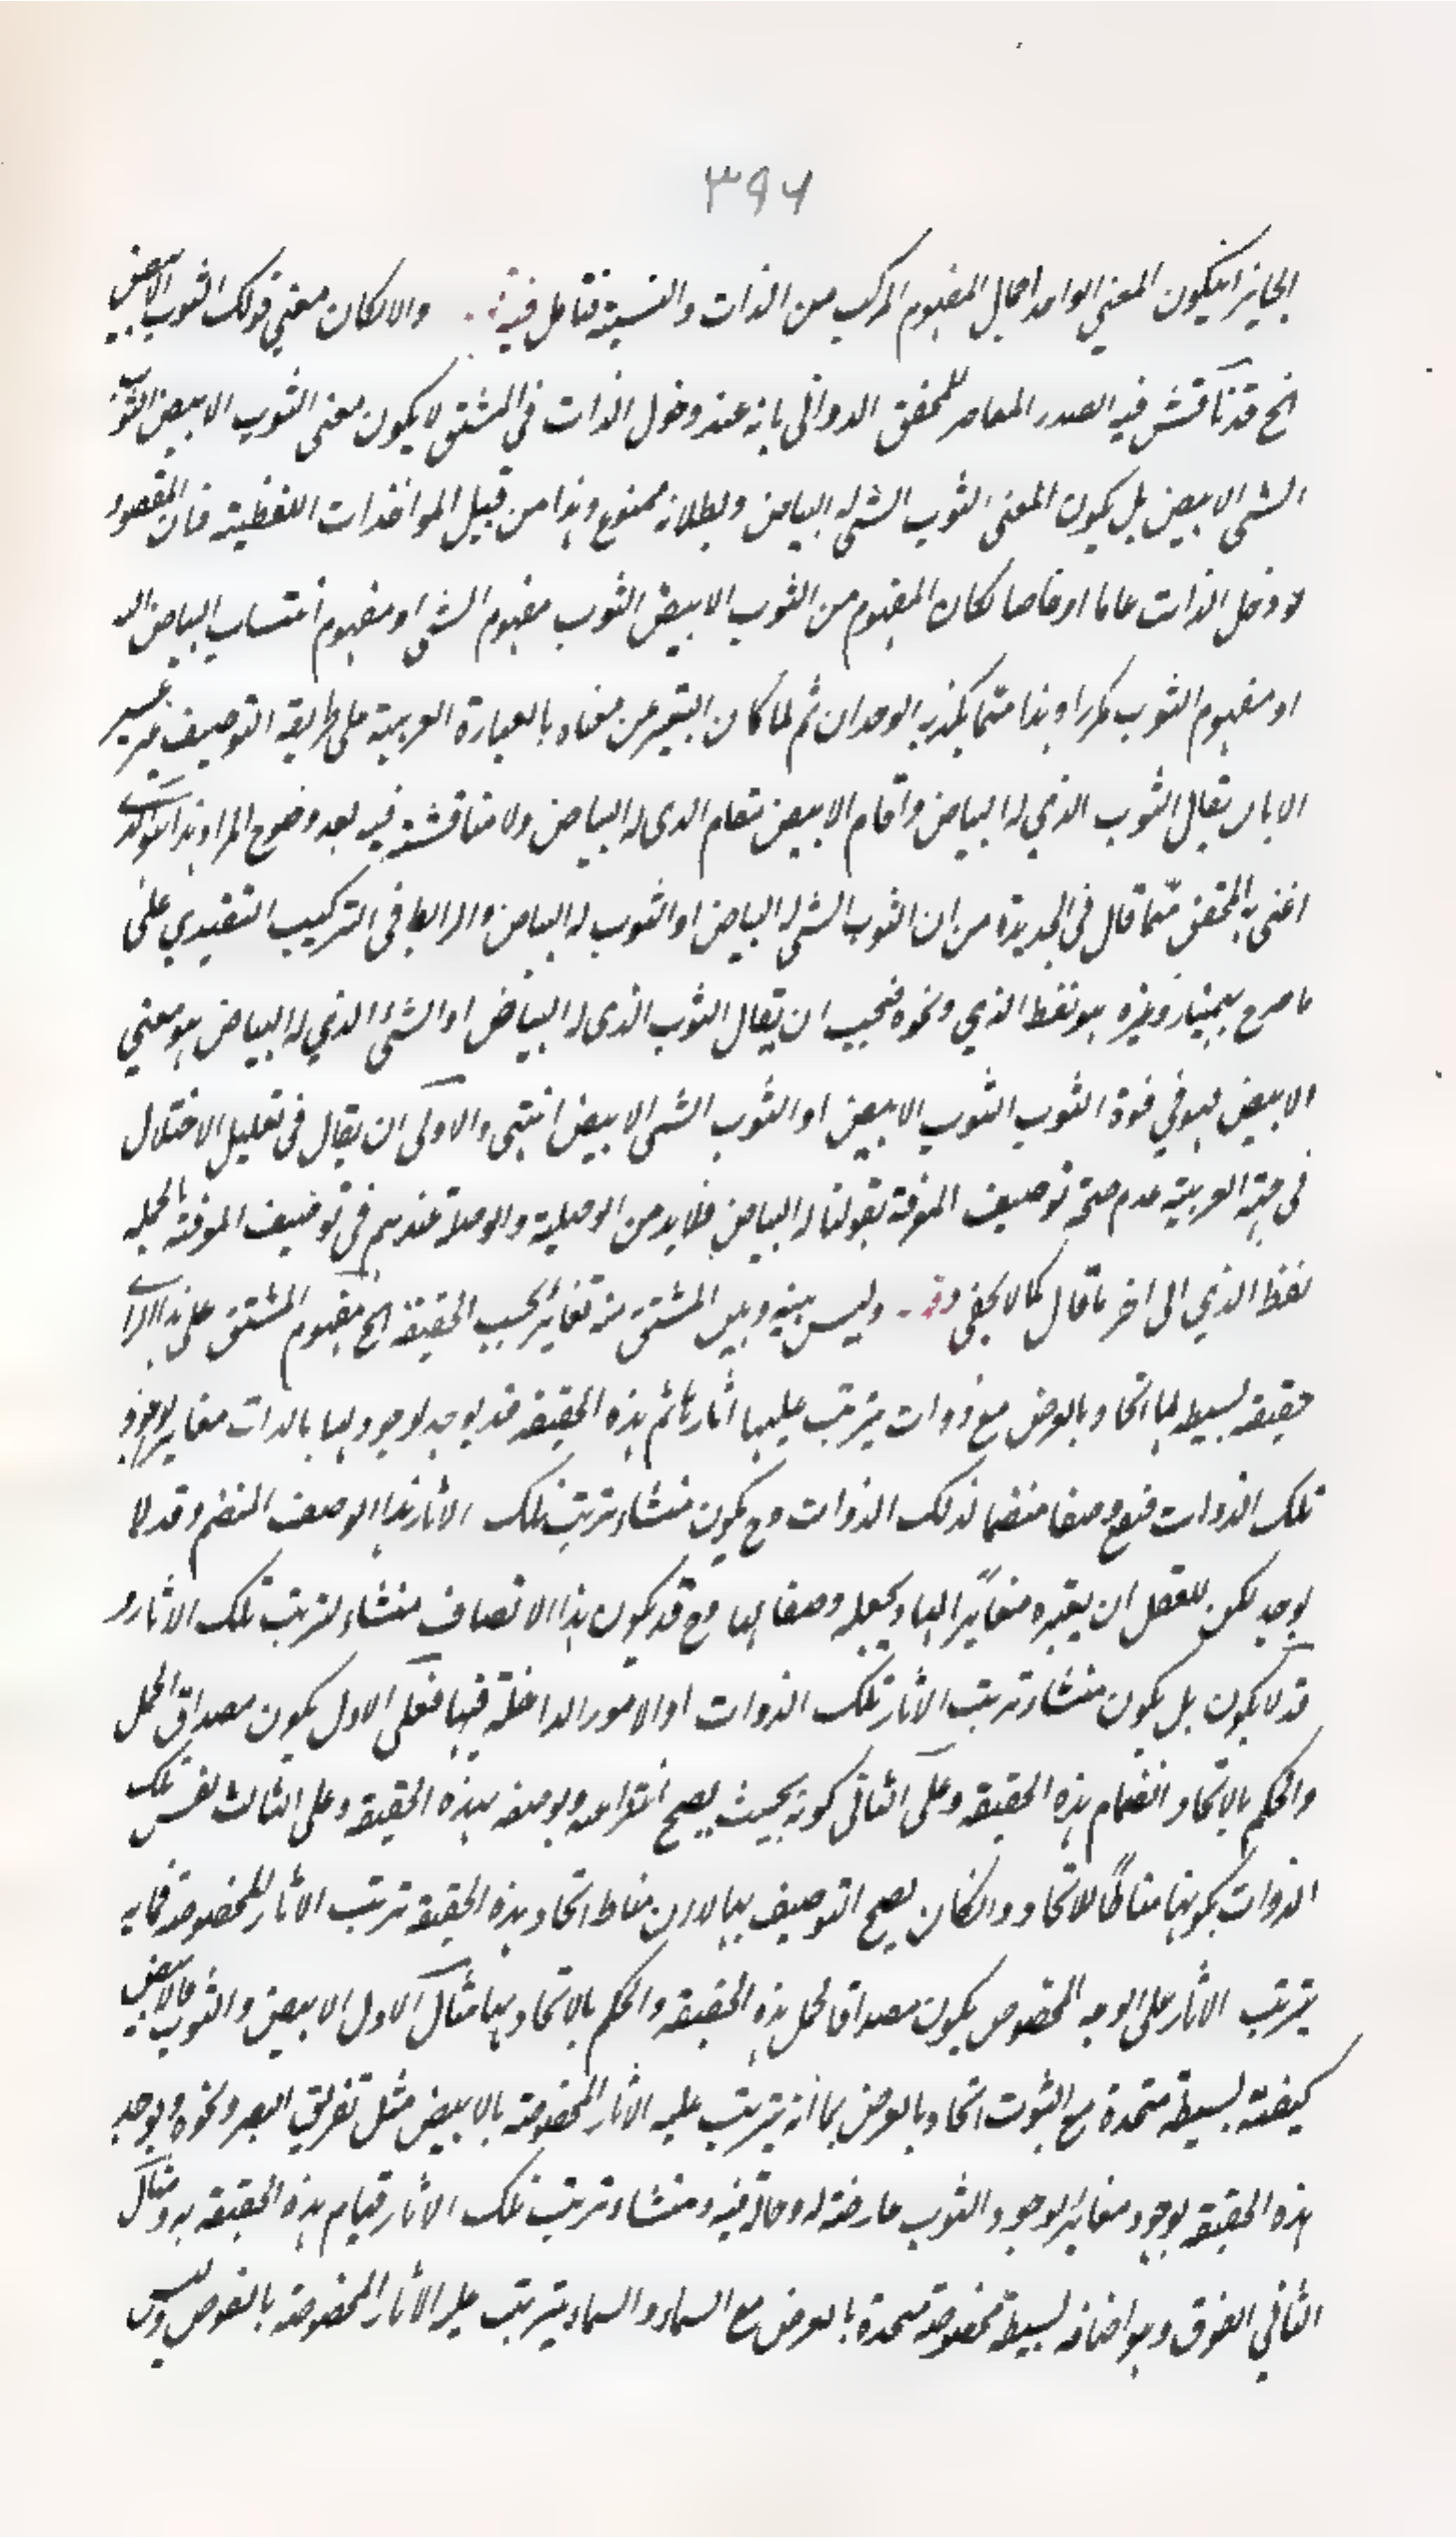 ٣٩٦
الجايز ان يكون المعنى الواحد اجمال المفهوم المركب من الذات والنسبة فتامل فيه والا لكان معنى قولك الثوب الابيض
الخ قد ناقش فيه الصدر المعاصر للمحقق الدواني بانه عند دخول الذات في المشتق لا يكون معنى الثوب الابيض الثوب
الشي الابيض بل يكون المعنى الثوب الشي له البياض وبطلانه ممنوع وهذا من قبيل المواخذات اللفظية فان المقصود
لو دخل الذات عاما او خاصا لكان المفهوم من الثوب الابيض الثوب مفهوم الشي او مفهوم انتساب البياض اليه
او مفهوم الثوب مكررا وهذا مما يكذبه الوجدان ثم لما كان التعبير عن معناه بالعبارة العربية على طريقة التوصيف غير يسير
الا بان يقال الثوب الذي له البياض واقام الابيض مقام الذي له البياض ولا مناقشة فيه بعد وضوح المراد وهذا هو الذي
اعنى به المحقق مما قال في الجديدة من ان الثوب الشي له البياض او الثوب له البياض والرابط في التركيب التقييدي على
ما صرح بهمنيار وغيره هو لفظ الذي ونحوه فيجب ان يقال الثوب الذي له البياض او الشئ الذي له البياض هو معنى
الابيض فهو في قوة الثوب الثوب الابيض او الثوب الشي الابيض انتهى والاولى ان يقال في تعليل الاختلال
في جهة العربية عدم صحة توصيف المعرفة بقولنا له البياض فلا بد من الوصيلة والوصلة عندهم في توصيف المعرفة بالجملة
لفظ الذي الى اخر ما قال كما لا يخفى وليس بينه وبين المشتق منه تغاير بحسب الحقيقة الخ مفهوم المشتق على هذا الراي
حقيقة بسيطة لها اتحاد بالعرض مع ذوات يترتب عليها اثار ثم هذه الحقيقة قد يوجد لوجود لها بالذات مغاير لوجود
تلك الذوات فتقع وصفا منضما لذلك الذوات وح يكون منشاء ترتب تلك الاثار هذا الوصف المنضم وقد لا
يوجد لكن للعقل ان يعتبره مغايرا لها ويجعله وصفا لها وح قد يكون هذا الاتصاف منشاء لترتب تلك الاثار و
قد لا يكون بل يكون منشاء ترتب الاثار تلك الذوات او الامور الداخلة فيها فعلى الاول يكون مصداق الحمل
والحكم بالاتحاد انضمام هذه الحقيقة وعلى الثاني كونه بحيث يصح انتزاعه ويوصفه بهذه الحقيقة وعلى الثالث نفس تلك
الذوات بكونها مناطا للاتحاد وان كان يصح التوصيف بها لان مناط اتحاد هذه الحقيقة ترتب الاثار المخصوصة فما به
يترتب الاثار على الوجه المخصوص يكون مصداقا لحمل هذه الحقيقة والحكم بالاتحاد بها مثال الاول الابيض والثوب فالابيض
كيفية بسيطة متحدة مع الثوب اتحادا بالعرض بما انه يترتب عليه الاثار المخصوصة بالابيض مثل تفريق البصر ونحوه ويوجد
هذه الحقيقة بوجود مغاير لوجود الثوب عارضة له وحالة فيه ومنشاء ترتب تلك الاثار قيام هذه الحقيقة به ومثال
الثاني الفوق وهو اضافة بسيطة مخصوصة متحدة بالعرض مع السماء والسماء يترتب عليه الاثار المخصوصة بالفوق وليس